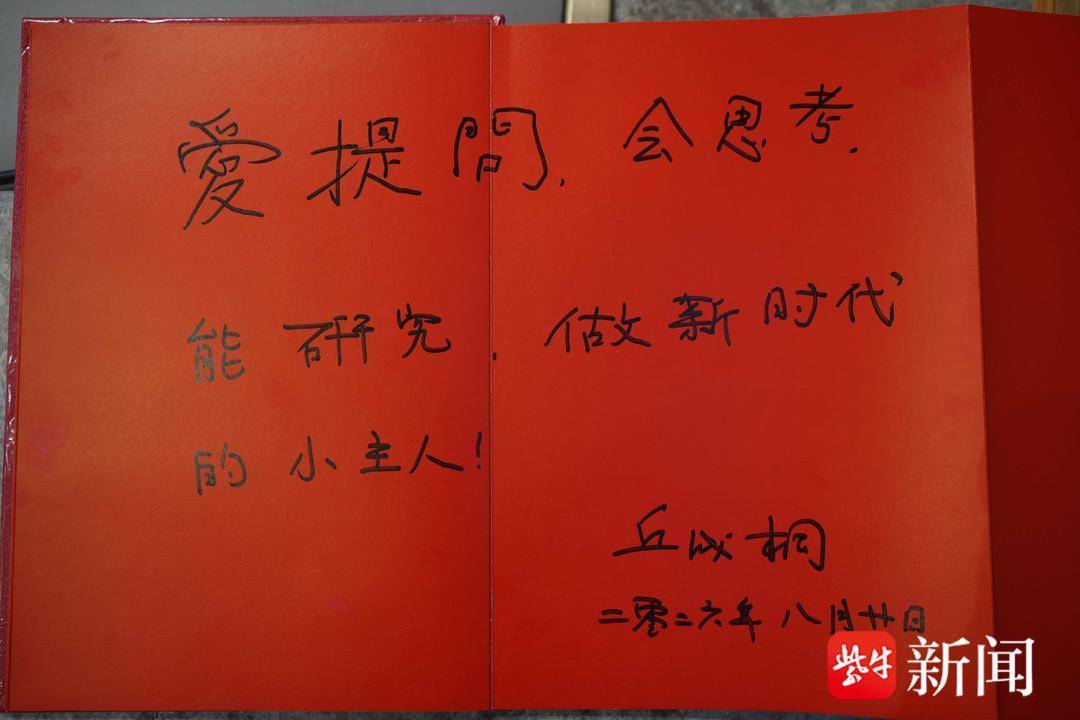 愛提問.会思考.
能研究.做新时代
的小主人!
丘成桐
二零二六年八月廿日
紫牛新闻